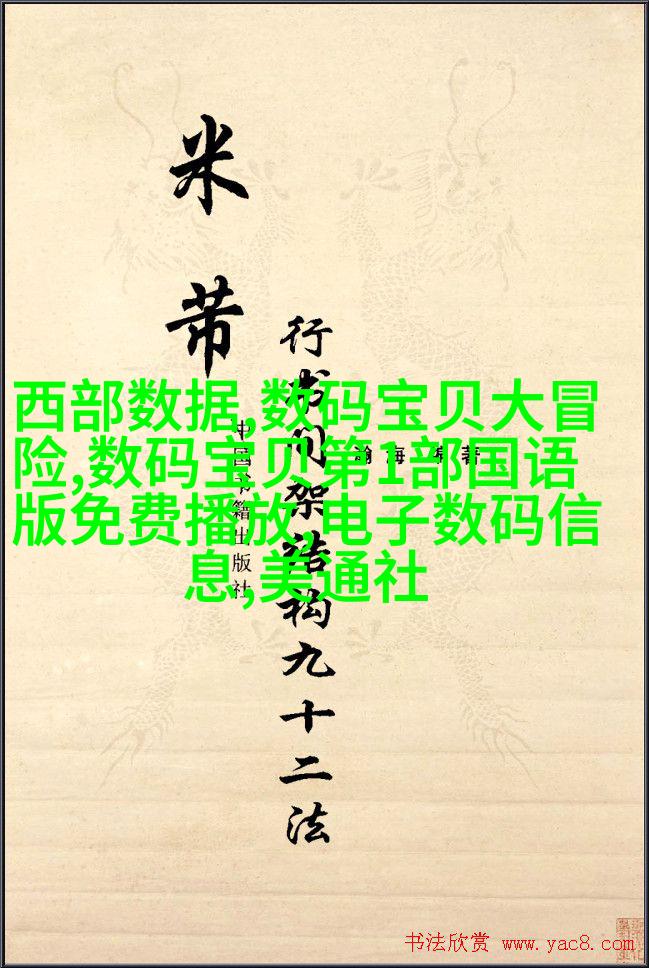 米芾
行书间架结构九十二法
瀚海 编著
中国书籍出版社
西部数据,数码宝贝大冒
险,数码宝贝第1部国语
版免费播放,电子数码信
息,美通社
书法欣赏 www.yac8.com